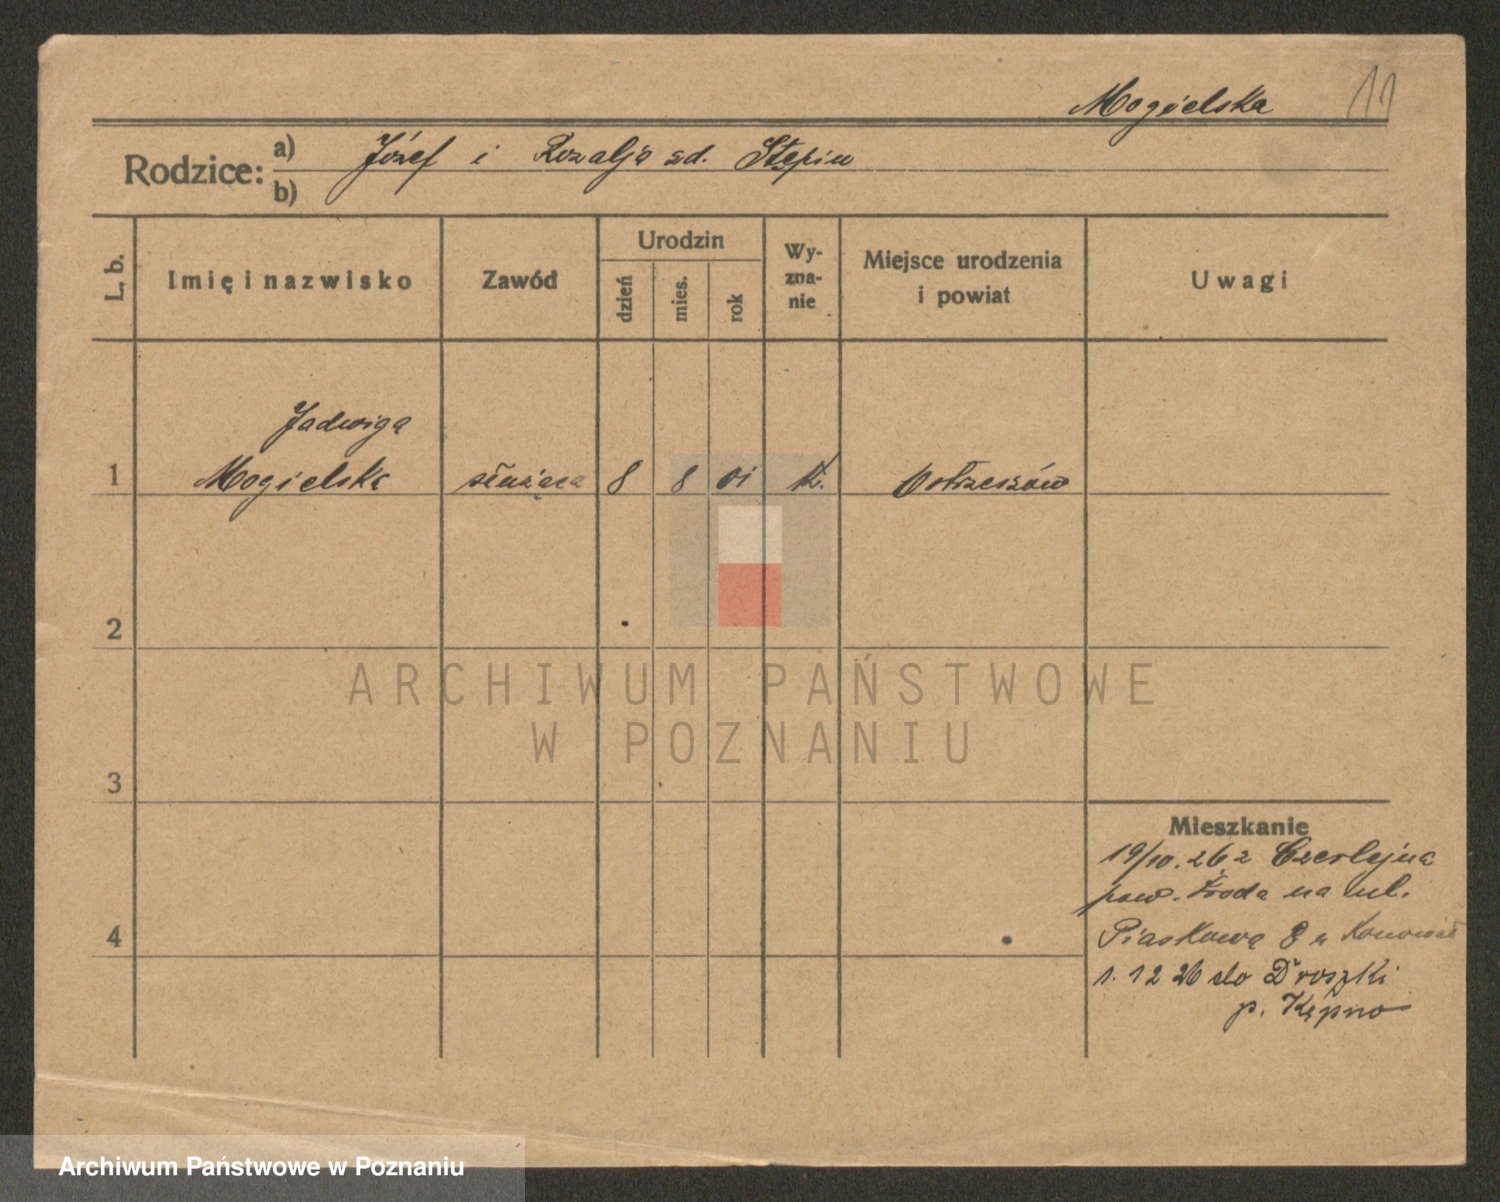 Mogielska 11
Rodzice: a) Józef i Rozalja zd. Stępin
b)
L. b. Imię i nazwisko Zawód Urodzin dzień mies. rok Wy-zna-nie Miejsce urodzenia i powiat Uwagi
Jadwiga
1 Mogielska służąca 8 8 01 k. Ostrzeszów
2
ARCHIWUM PAŃSTWOWE
W POZNANIU
3
Mieszkanie
19/10. 26 z Czerlejna
pow. Środa na ul.
4 Piaskową 8 u
1. 12 26 do Droszki
p. Kępno
Archiwum Państwowe w Poznaniu